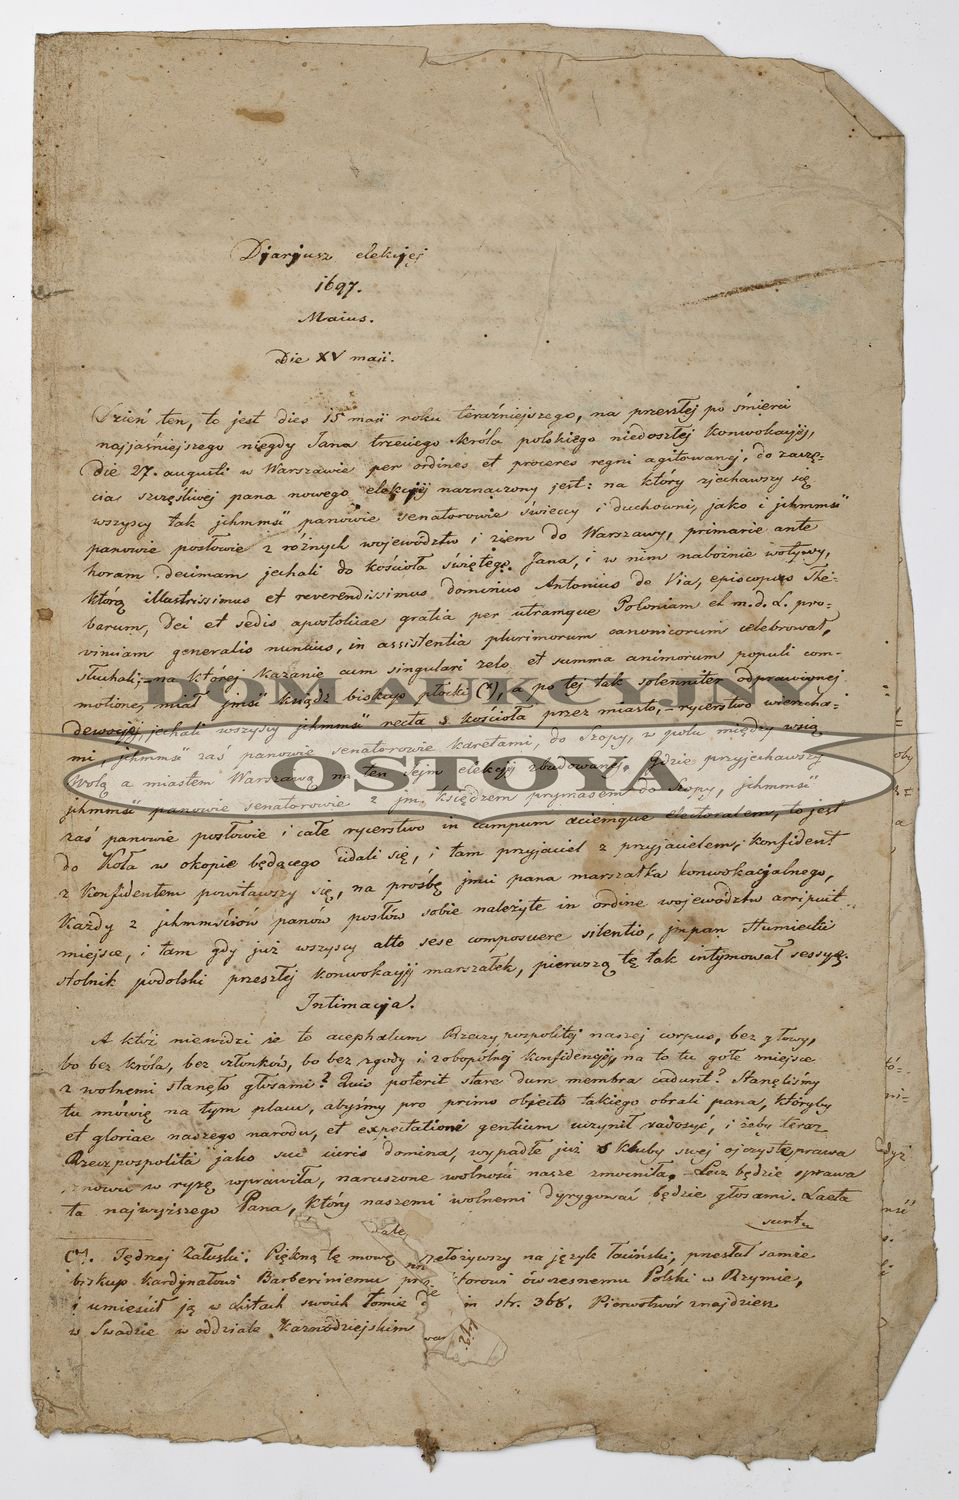 Djarjusz elekcjej
1697.
Maius.
Die XV maji.
Dzień ten, to jest dies 15 maii roku teraźniejszego, na przeszłej po śmierci
najjaśniejszego niegdy Jana trzeciego króla polskiego niedoszłej konwokacjej,
die 27. augusti w Warszawie per ordines et proceres regni agitowanej, do zaczę-
cia szczęśliwej pana nowego elekcjej naznaczony jest: na który zjechawszy się
wszyscy tak jchmmść panowie senatorowie świeccy i duchowni, jako i jchmmść
panowie posłowie z różnych województw i ziem do Warszawy, primarie ante
horam decimam jechali do kościoła świętego Jana, i w nim nabożnie wotywy,
którą illustrissimus et reverendissimus dominus Antonius de Via, episcopus The-
barum, Dei et sedis apostolicae gratia per utramque Poloniam et m. d. L. pro-
vinciam generalis nuntius, in assistentia plurimorum canonicorum celebrował,
słuchali; na której kazanie cum singulari zelo et summa animorum populi com-
motione, miał jmść ksiądz biskup płocki (*), a po tej tak solenniter odprawionej
dewocjej, jechali wszyscy jchmmść recta z kościoła przez miasto, rycerstwo wierzcha-
mi, jchmmść zaś panowie senatorowie karetami, do szopy, w polu między wsią
Wolą a miastem Warszawą na ten sejm elekcjej zbudowanej. Gdzie przyjechawszy
jchmmść panowie senatorowie z jm. księdzem prymasem do szopy, jchmmść
zaś panowie posłowie i całe rycerstwo in campum aciemque electoralem, to jest
do Koła w okopie będącego udali się, i tam przyjaciel z przyjacielem, konfident
z konfidentem powitawszy się, na prośbę jmci pana marszałka konwokacjalnego,
każdy z jchmmściów panów posłów sobie należyte in ordine województw arripuit
miejsce, i tam gdy już wszyscy alto sese composuere silentio, jmpan Humiecki
stolnik podolski przeszłej konwokacjej marszałek, pierwszą tę tak intymował sessyę.
Intimacja.
A któż niewidzi że to acephalum Rzeczypospolitej naszej corpus, bez głowy,
bo bez króla, bez członków, bo bez zgody i zobopólnej konfidencjej, na to tu gołe miejsce
z wolnemi stanęło głosami? Quis poterit stare dum membra cadunt? Stanęliśmy
tu mówię na tym placu, abyśmy pro primo objecto takiego obrali pana, któryby
et gloriae naszego narodu, et expectationi gentium uczynił zadosyć, i żeby teraz
Rzeczpospolita jako sui iuris domina, wypadłe już z kluby swej ojczyste prawa
znowu w ryzę wprawiła, naruszone wolności nasze zmocniła. Lecz będzie sprawa
ta najwyższego Pana, który naszemi wolnemi dyrygować będzie głosami. Laeta
sunt
(*). Jędrzej Załuski: Piękną tę mowę przełożywszy na język łaciński, przesłał samże
biskup kardynałowi Barberiniemu ówczesnemu Polski w Rzymie,
i umieścił ją w Listach swoich Tomie in str. 368. Pierwotwór znajdziesz
w Swadzie w oddziale Kaznodziejskim